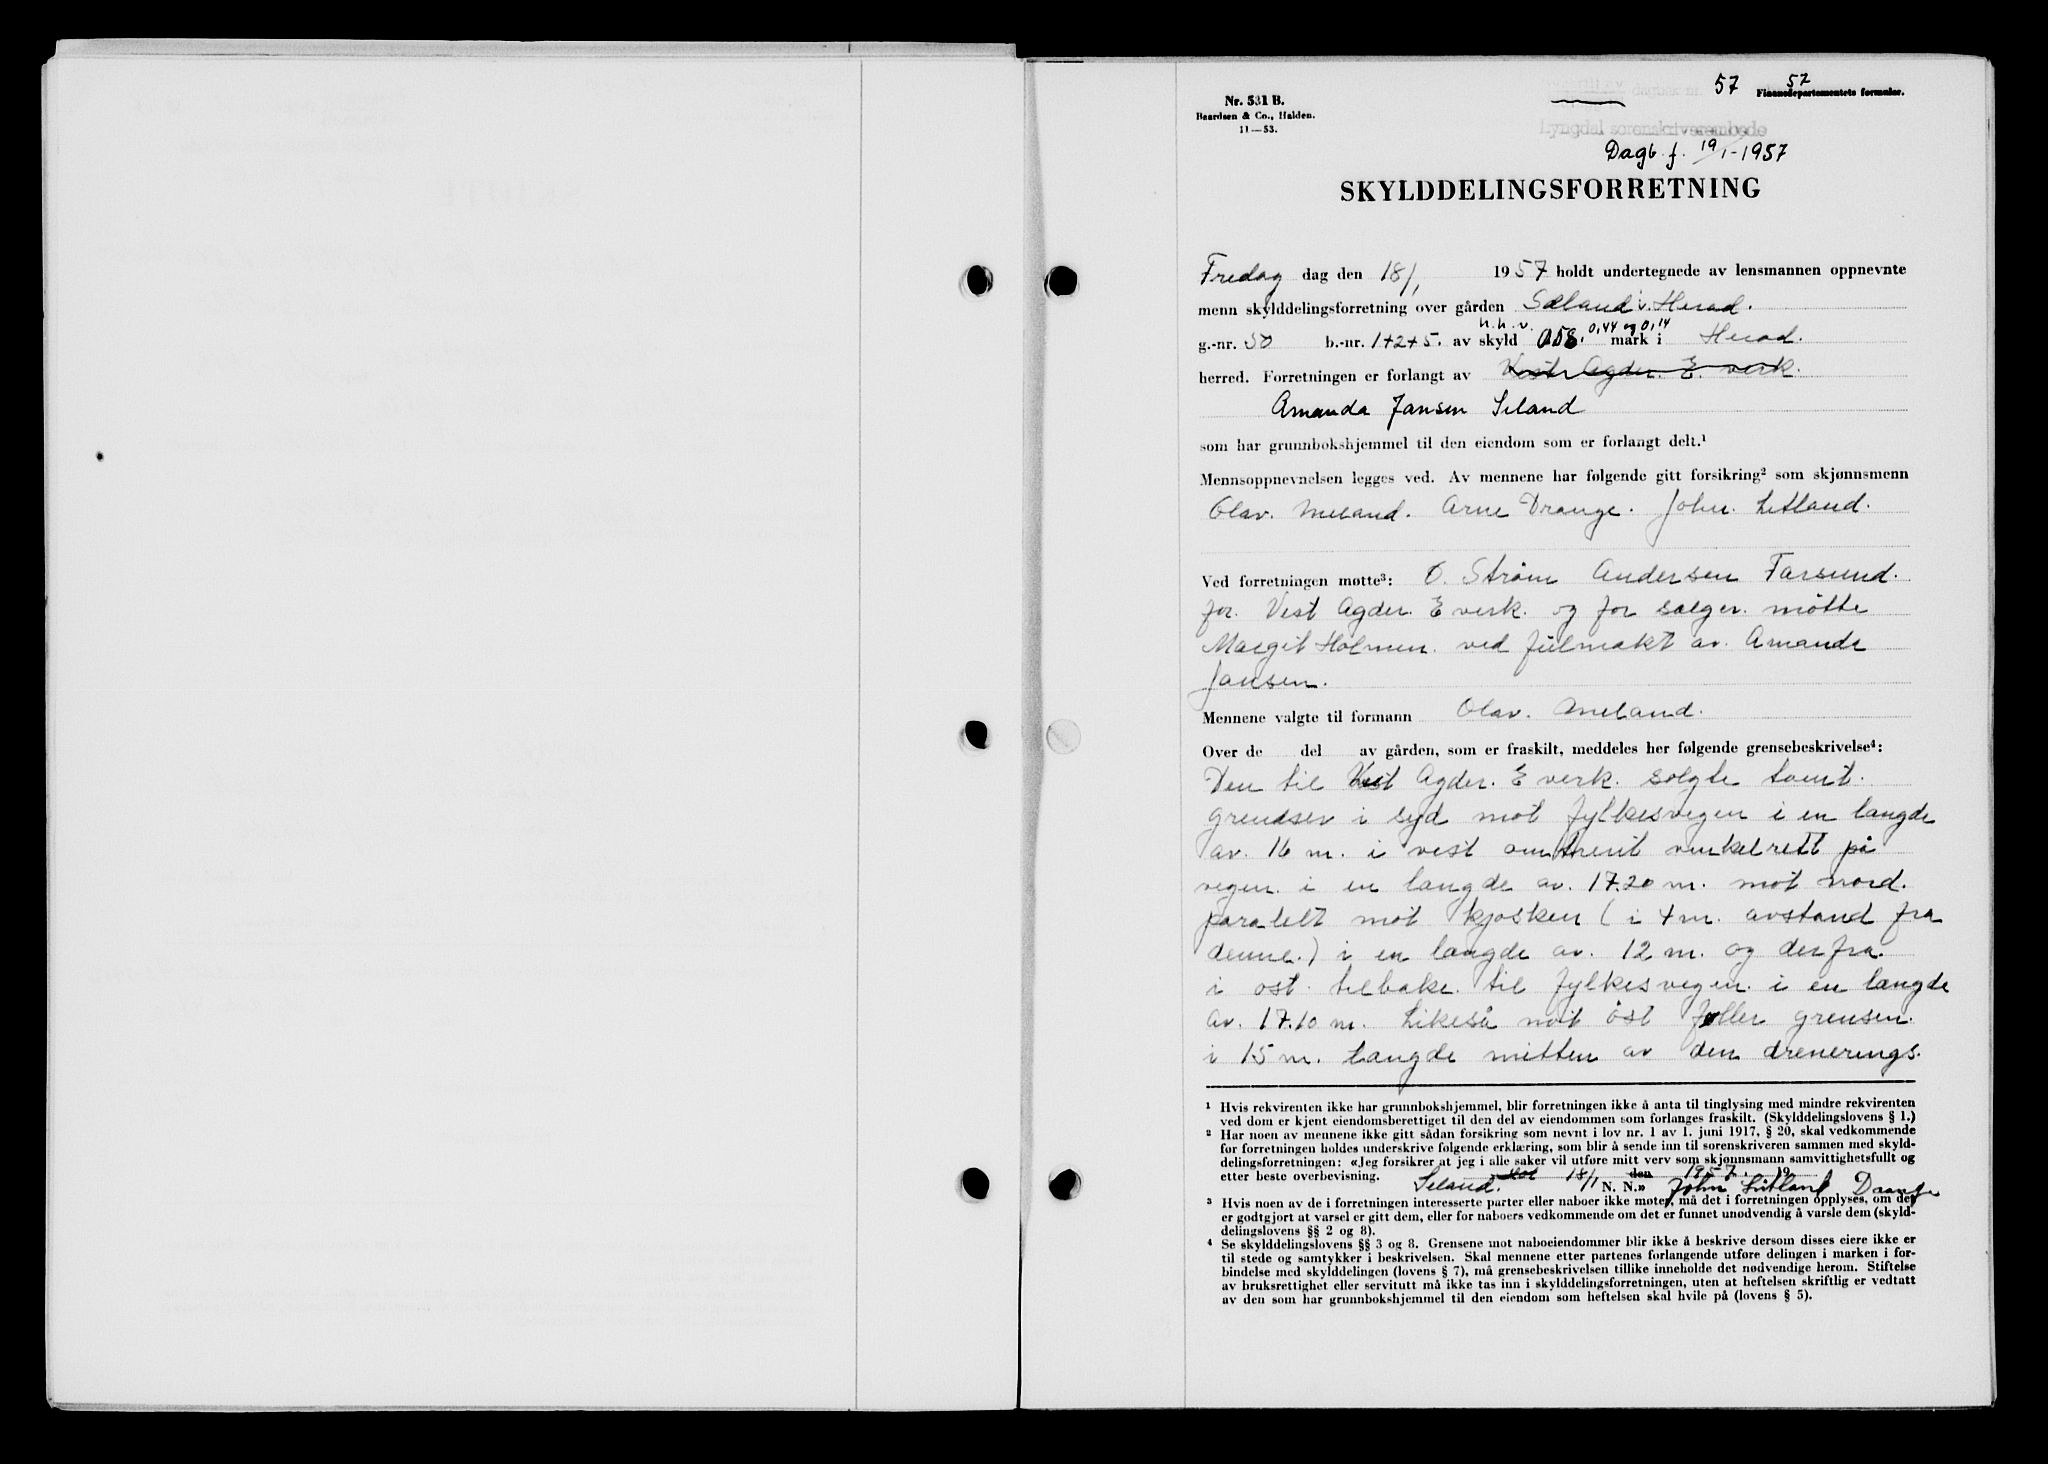 57 57
dagbok nr.
Finansdepartementets formular.
Nr. 531 B.
Baardsen & Co., Halden.
11—53.
Lyngdal sorenskriverembede
Dagb. f. 19/1-1957
SKYLDDELINGSFORRETNING
Fredag dag den 18/1 1957 holdt undertegnede av lensmannen oppnevnte
menn skylddelingsforretning over gården Sæland i Herad.
h.h.v. 0,44 og 0,14
g.-nr. 50 b.-nr. 1+2+5. av skyld 0,58. mark i Herad.
herred. Forretningen er forlangt av Vest Agder. E. verk.
Amanda Jansen Seland
som har grunnbokshjemmel til den eiendom som er forlangt delt.¹
Mennsoppnevnelsen legges ved. Av mennene har følgende gitt forsikring² som skjønnsmenn
Olav. Meland. Arne Drange. John. Letland.
Ved forretningen møtte³: O. Strøm Andersen Farsund.
for. Vest Agder. E verk. og for sælger. møtte
Margit Holmen. ved fullmakt av. Amanda
Jansen.
Mennene valgte til formann Olav. Meland.
Over de del av gården, som er fraskilt, meddeles her følgende grensebeskrivelse⁴:
Den til Vest Agder. E verk. solgte tomt.
grendser i syd mot fylkesvegen i en længde
av. 16 m. i vest omtrent vinkelrett på
vegen. i en længde av. 17.20 m. mot nord.
paralelt mot kjosken ( i 4 m. avstand fra
denne.) i en længde av. 12 m. og derfra.
i ost. tilbake. til fylkesvegen. i en længde
av. 17.10 m. Likeså mot øst føller grensen.
i 15 m. længde mitten av den drenerings.
¹ Hvis rekvirenten ikke har grunnbokshjemmel, blir forretningen ikke å anta til tinglysing med mindre rekvirenten
ved dom er kjent eiendomsberettiget til den del av eiendommen som forlanges fraskilt. (Skylddelingslovens § 1.)
² Har noen av mennene ikke gitt sådan forsikring som nevnt i lov nr. 1 av 1. juni 1917, § 20, skal vedkommende
før forretningen holdes underskrive følgende erklæring, som blir å sende inn til sorenskriveren sammen med skyld-
delingsforretningen: «Jeg forsikrer at jeg i alle saker vil utføre mitt verv som skjønnsmann samvittighetsfullt og
etter beste overbevisning. Seland. 18/1 den 1957. 19
N. N.» John Letland Drange
³ Hvis noen av de i forretningen interesserte parter eller naboer ikke møter, må det i forretningen opplyses, om det
er godtgjort at varsel er gitt dem, eller for naboers vedkommende om det er funnet unødvendig å varsle dem (skyld-
delingslovens §§ 2 og 8).
⁴ Se skylddelingslovens §§ 3 og 8. Grensene mot naboeiendommer blir ikke å beskrive dersom disses eiere ikke er
til stede og samtykker i beskrivelsen. Skal mennene etter partenes forlangende utføre delingen i marken i for-
bindelse med skylddelingen (lovens § 7), må grensebeskrivelsen tillike inneholde det nødvendige herom. Stiftelse
av bruksrettighet eller servitutt må ikke tas inn i skylddelingsforretningen, uten at heftelsen skriftlig er vedtatt
av den som har grunnbokshjemmel til den eiendom som heftelsen skal hvile på (lovens § 5).